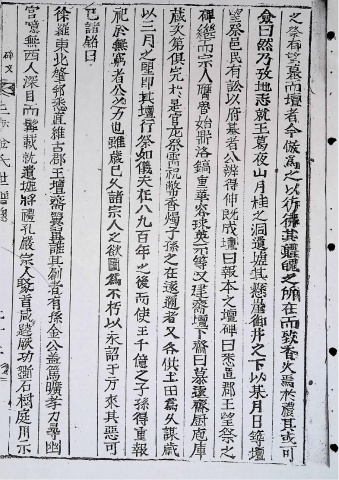 之祭有望墓而壇者今倣爲之以彷彿其體魄之所在而致香火焉於禮其或可
僉曰然乃攷地志就王葛夜山月桂之洞遺墟其懸崖御井之下以某月日等壇
望祭邑民有訟以府墓者公辨得伸旣成壇曰報本之壇碑曰悉直郡王望祭之
碑繼而宗人膺魯始 洛鎬重華 球英 等又建齋壇下齋曰慕遠齋厨庖庫
藏次第俱完於是官 需祝幣香燭子孫之在遠邇者又各供土田爲久謀歲
以三月之望卽其壇行祭如儀夫在八九百年之後而使王千億之子孫得重報
祀於無窮者公之力也雖歲已久諸宗人之欲圖爲不朽以永詔于方來其惡可
已諸銘曰
徐羅東北 邦悉直維古郡王壇齋翼 誰其刱者有孫金公 篤曠孝刀尋幽
宮 無西人深目而 載就遺墟將禮孔嚴宗人聚首咸 厥功斵石樹庭用示
碑文
金氏世譜